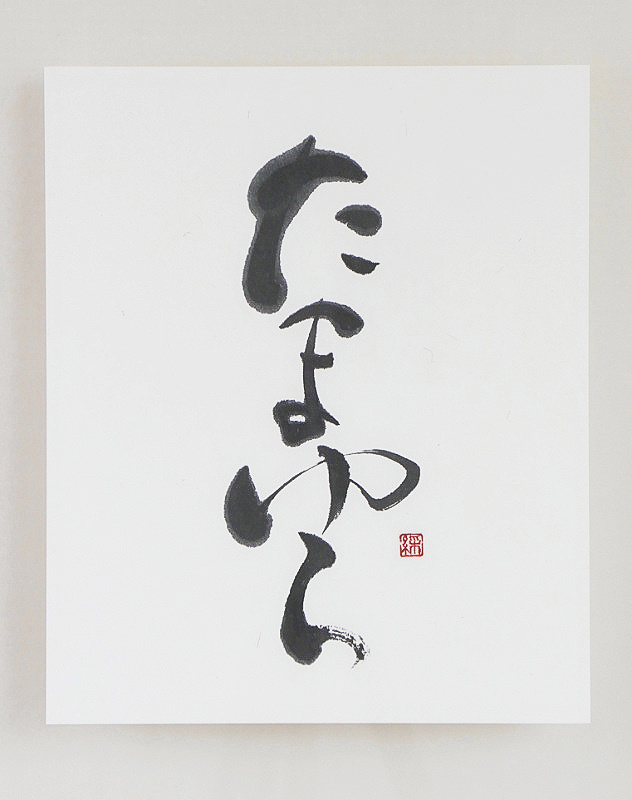 たまゆら